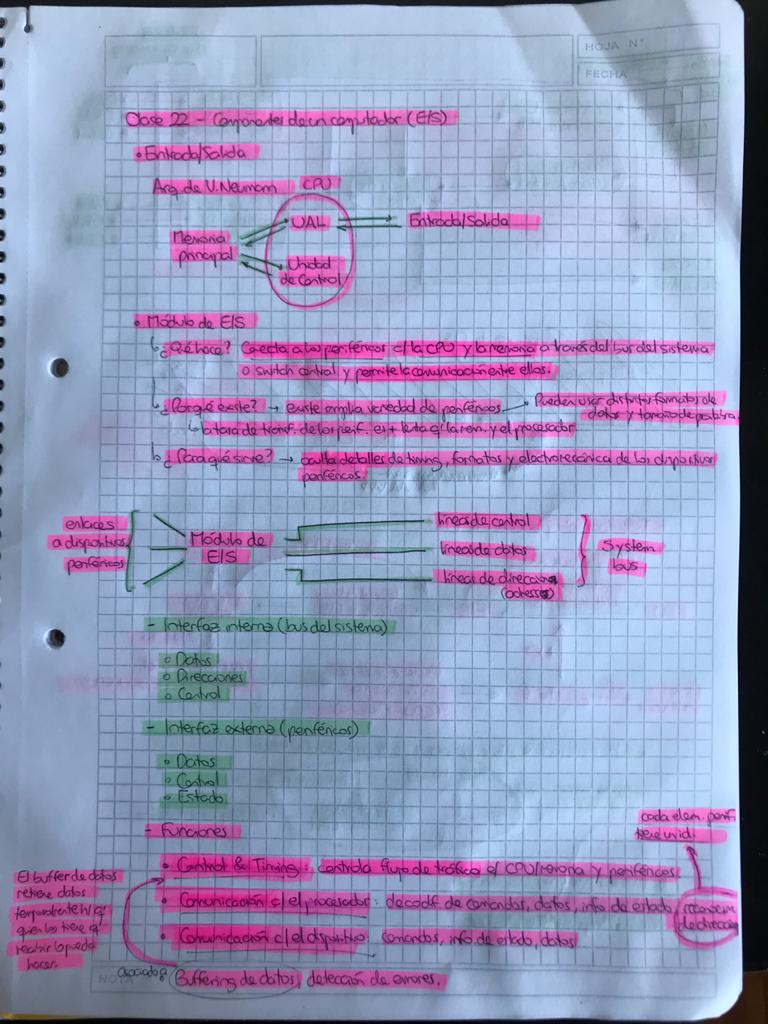 HOJA N°
FECHA
Clase 22 - Componentes de un computador (E/S)
• Entrada/Salida
Arq. de V. Neumann CPU
UAL Entrada/Salida
Memoria
principal
Unidad
de Control
• Módulo de E/S
¿Qué hace? Conecta a los periféricos c/ la CPU y la memoria a través del bus del sistema
o switch central y permite la comunicación entre ellos.
¿Por qué existe? → existe amplia variedad de periféricos. → Pueden usar distintos formatos de
datos y tamaño de palabra.
la tasa de transf. de los perif. es + lenta q' la mem. y el procesador
¿Para qué sirve? → oculta detalles de timing, formatos y electromecánica de los dispositivos
periféricos.
enlaces
a dispositivos
periféricos
Módulo de
E/S
líneas de control
líneas de datos
líneas de direcciones
(adress)
System
bus
- Interfaz interna (bus del sistema)
• Datos
• Direcciones
• Control
- Interfaz externa (periféricos)
• Datos
• Control
• Estado
- Funciones
cada elem. perif.
tiene un id.
• Control & Timing: controla flujo de tráfico e/ CPU/memoria y periféricos.
• Comunicación c/ el procesador: decodif de comandos, datos, info de estado, reconocim
de dirección
• Comunicación c/ el dispositivo: comandos, info de estado, datos
El buffer de datos
retiene datos
temporalmente h/ q'
quien los tiene q'
recibir lo pueda
hacer.
NOTA
asociado a Buffering de datos, detección de errores.